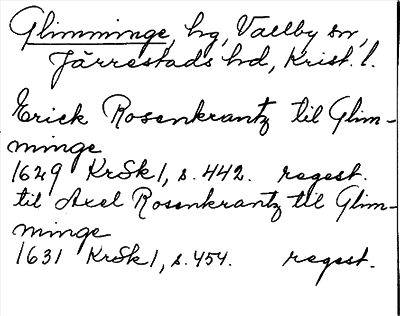 Glimminge, hg, Vallby sn,
Järrestads hd, Krist. l.
Erick Rosenkrantz til Glim-
minge
1629 KrSk 1, s. 442. regest.
til Axel Rosenkrantz till Glim-
minge
1631 KrSk 1, s. 454. regest.